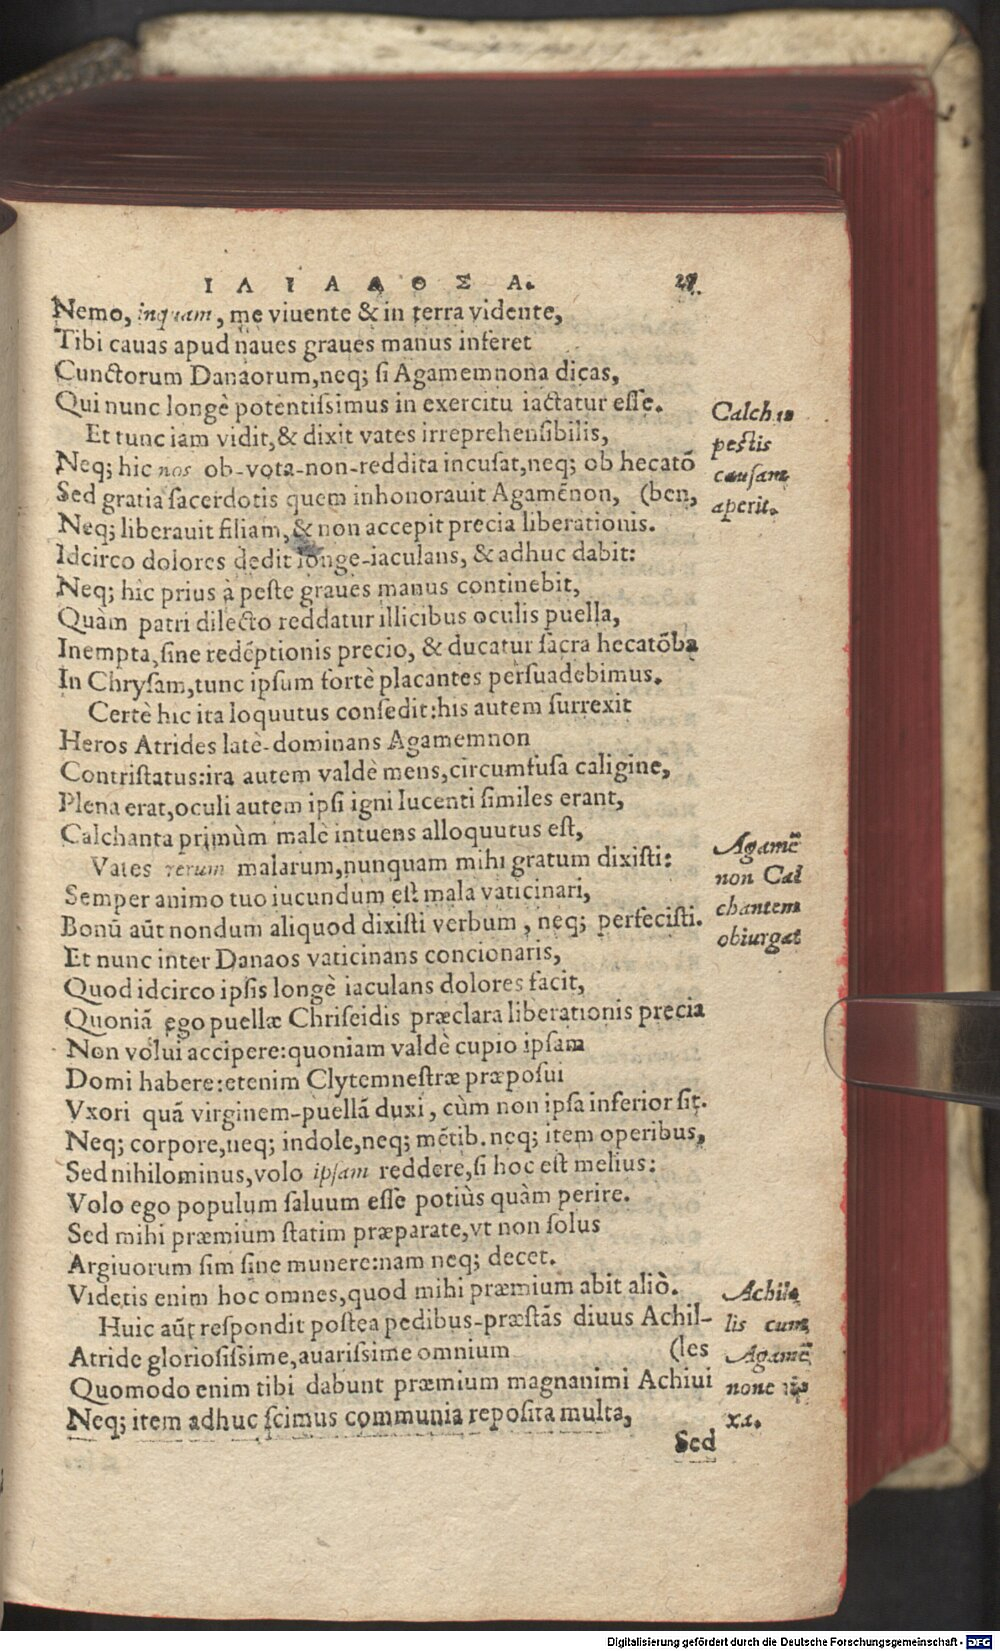 ΙΛΙΑΔΟΣ Α. 27.
Nemo, inquam, me viuente & in terra vidente,
Tibi cauas apud naues graues manus inferet
Cunctorum Danaorum, neq; si Agamemnona dicas,
Qui nunc longè potentissimus in exercitu iactatur esse.
Et tunc iam vidit, & dixit vates irreprehensibilis,
Neq; hic nos ob-vota-non-reddita incusat, neq; ob hecatō
Sed gratia sacerdotis quem inhonorauit Agamēnon, (ben,
Neq; liberauit filiam, & non accepit precia liberationis.
Idcirco dolores dedit longe-iaculans, & adhuc dabit:
Neq; hic prius à peste graues manus continebit,
Quàm patri dilecto reddatur illicibus oculis puella,
Inempta, sine redēptionis precio, & ducatur sacra hecatōba
In Chrysam, tunc ipsum fortè placantes persuadebimus.
Certè hic ita loquutus consedit: his autem surrexit
Heros Atrides latè-dominans Agamemnon
Contristatus: ira autem valdè mens, circumfusa caligine,
Plena erat, oculi autem ipsi igni lucenti similes erant,
Calchanta primùm malè intuens alloquutus est,
Vates rerum malarum, nunquam mihi gratum dixisti:
Semper animo tuo iucundum est mala vaticinari,
Bonū aūt nondum aliquod dixisti verbum, neq; perfecisti.
Et nunc inter Danaos vaticinans concionaris,
Quod idcirco ipsis longè iaculans dolores facit,
Quoniā ego puellæ Chriseidis præclara liberationis precia
Non volui accipere: quoniam valdè cupio ipsam
Domi habere: etenim Clytemnestræ præposui
Vxori quā virginem-puellā duxi, cùm non ipsa inferior sit.
Neq; corpore, neq; indole, neq; mētib. neq; item operibus,
Sed nihilominus, volo ipsam reddere, si hoc est melius:
Volo ego populum saluum esse potiùs quàm perire.
Sed mihi præmium statim præparate, vt non solus
Argiuorum sim sine munere: nam neq; decet.
Videtis enim hoc omnes, quod mihi præmium abit aliò.
Huic aūt respondit postea pedibus-præstās diuus Achil-
Atride gloriosissime, auarissime omnium (les
Quomodo enim tibi dabunt præmium magnanimi Achiui
Neq; item adhuc scimus communia reposita multa,
Sed
Calchas
pestis
causam
aperit.
Agamē
non Cal
chantem
obiurgat
Achil
lis cum
Agamē
none ri
xa.
Digitalisierung gefördert durch die Deutsche Forschungsgemeinschaft - DFG